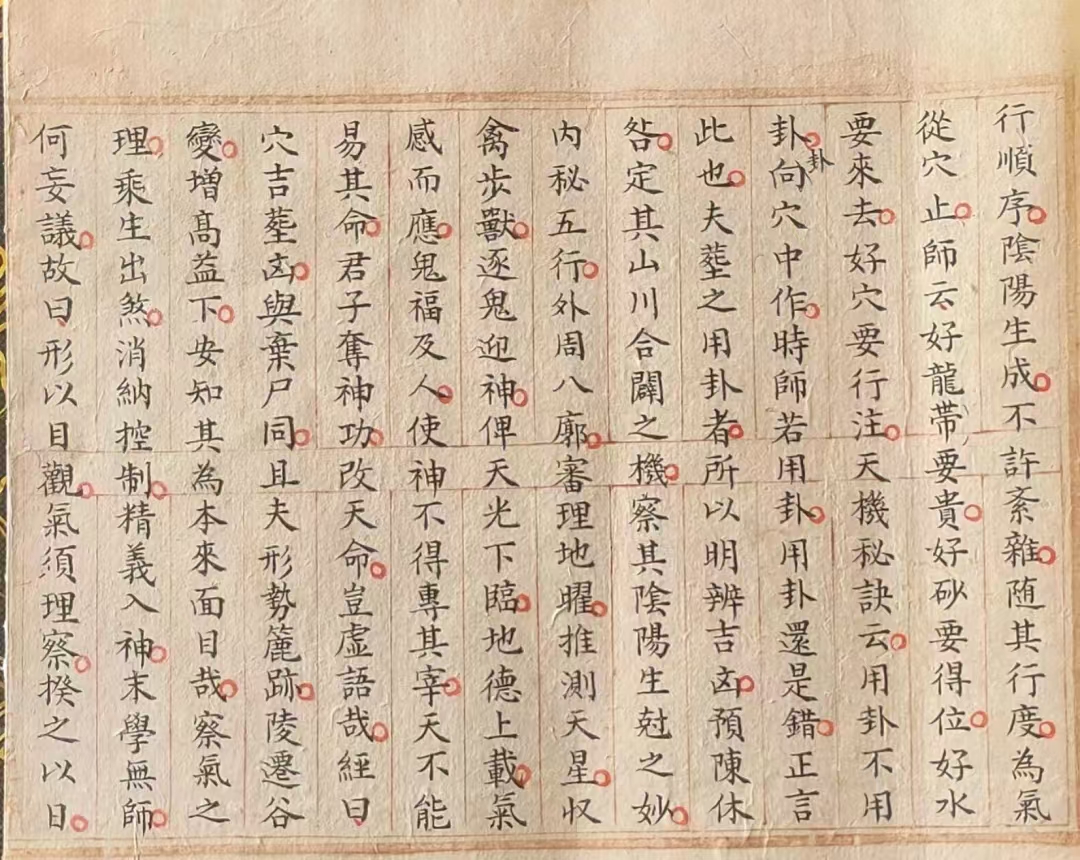 行順序陰陽生成不許紊雜随其行度為氣
從穴止師云好龍帶要貴好砂要得位好水
要來去好穴要行注天機秘訣云用卦不用
卦卦向穴中作時師若用卦用卦還是錯正言
此也夫塟之用卦者所以明辨吉凶預陳休
咎定其山川合闢之機察其陰陽生尅之妙
内秘五行外周八廓審理地曜推測天星収
禽步獸逐鬼迎神俾天光下臨地德上載氣
感而應鬼福及人使神不得專其宰天不能
易其命君子奪神功改天命豈虛語哉經曰
穴吉塟凶與棄尸同且夫形勢麄跡陵遷谷
變增髙益下安知其為本來面目哉察氣之
理乘生出煞消納控制精義入神末學無師
何妄議故曰形以目觀氣須理察揆之以日